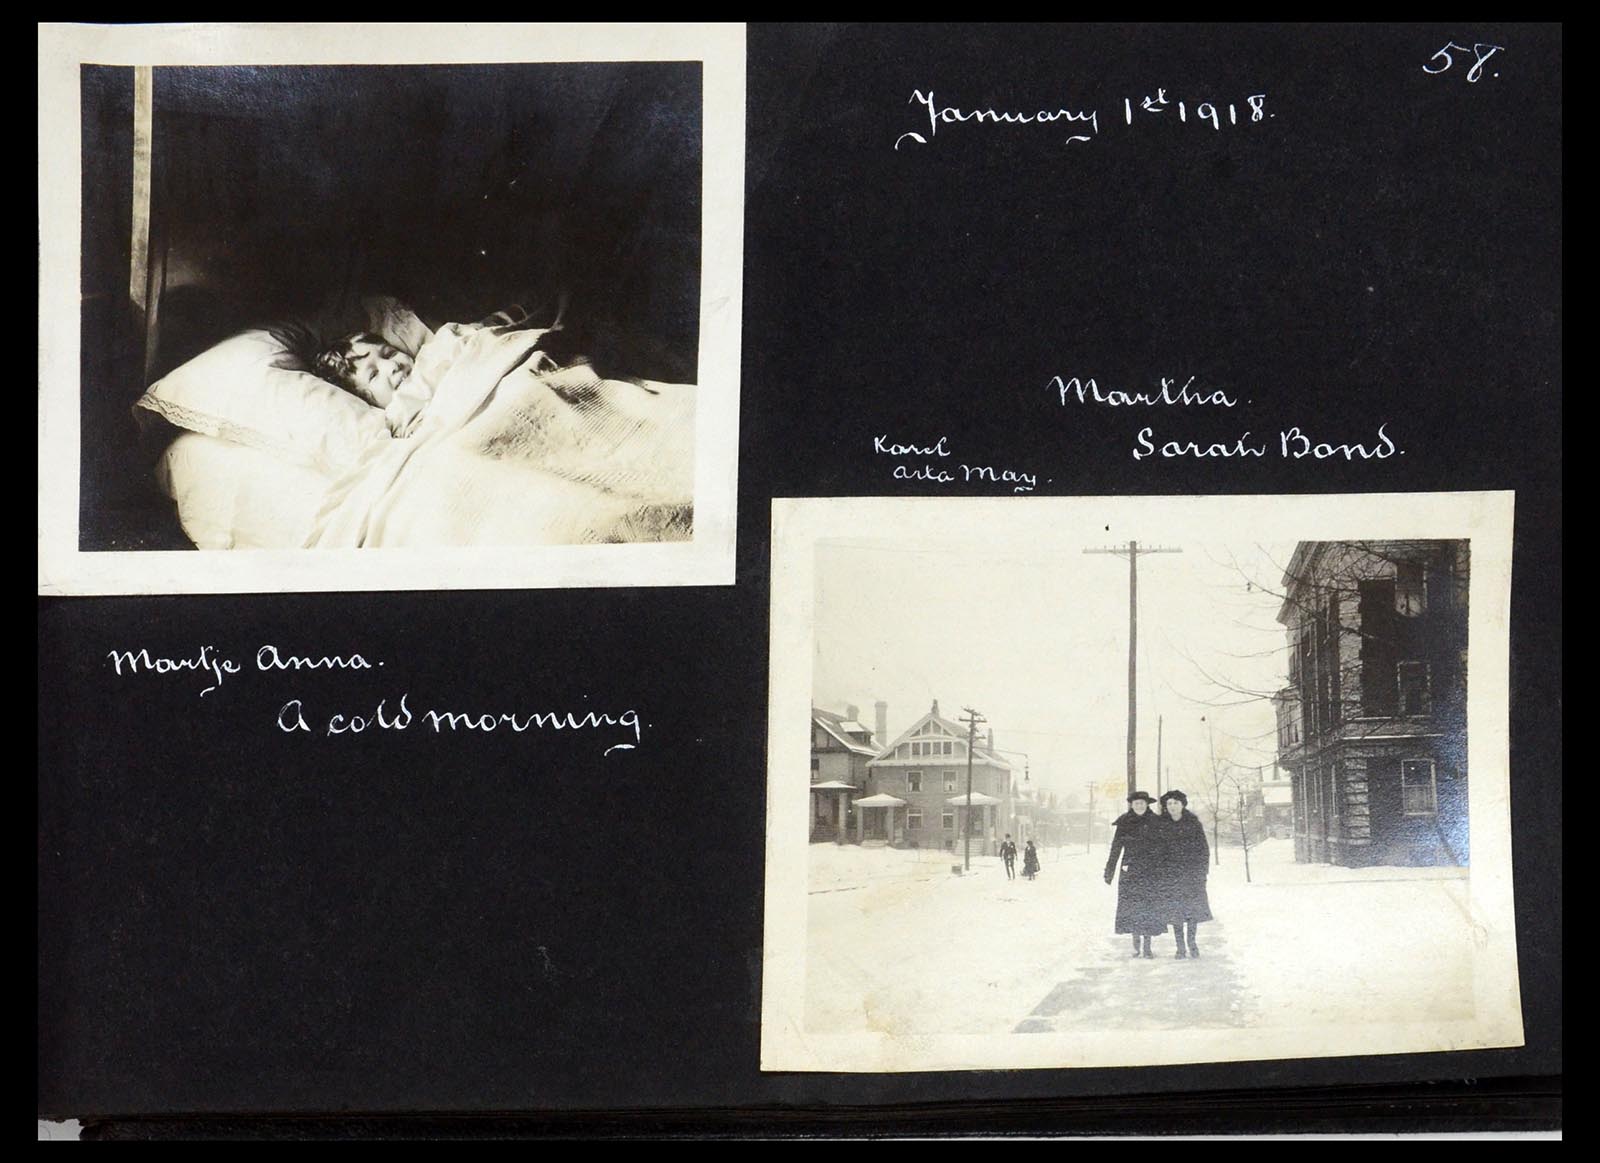 58.
January 1st 1918.
Martha.
Sarah Bond.
Karel
Arta May.
Martje Anna.
A cold morning.